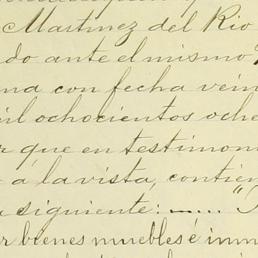 Martinez del Rio
do ante el mismo
na con fecha vein
il ochocientos oche
r que en testimon
á la vista, contien
a siguiente: —
r bienes muebles é inm